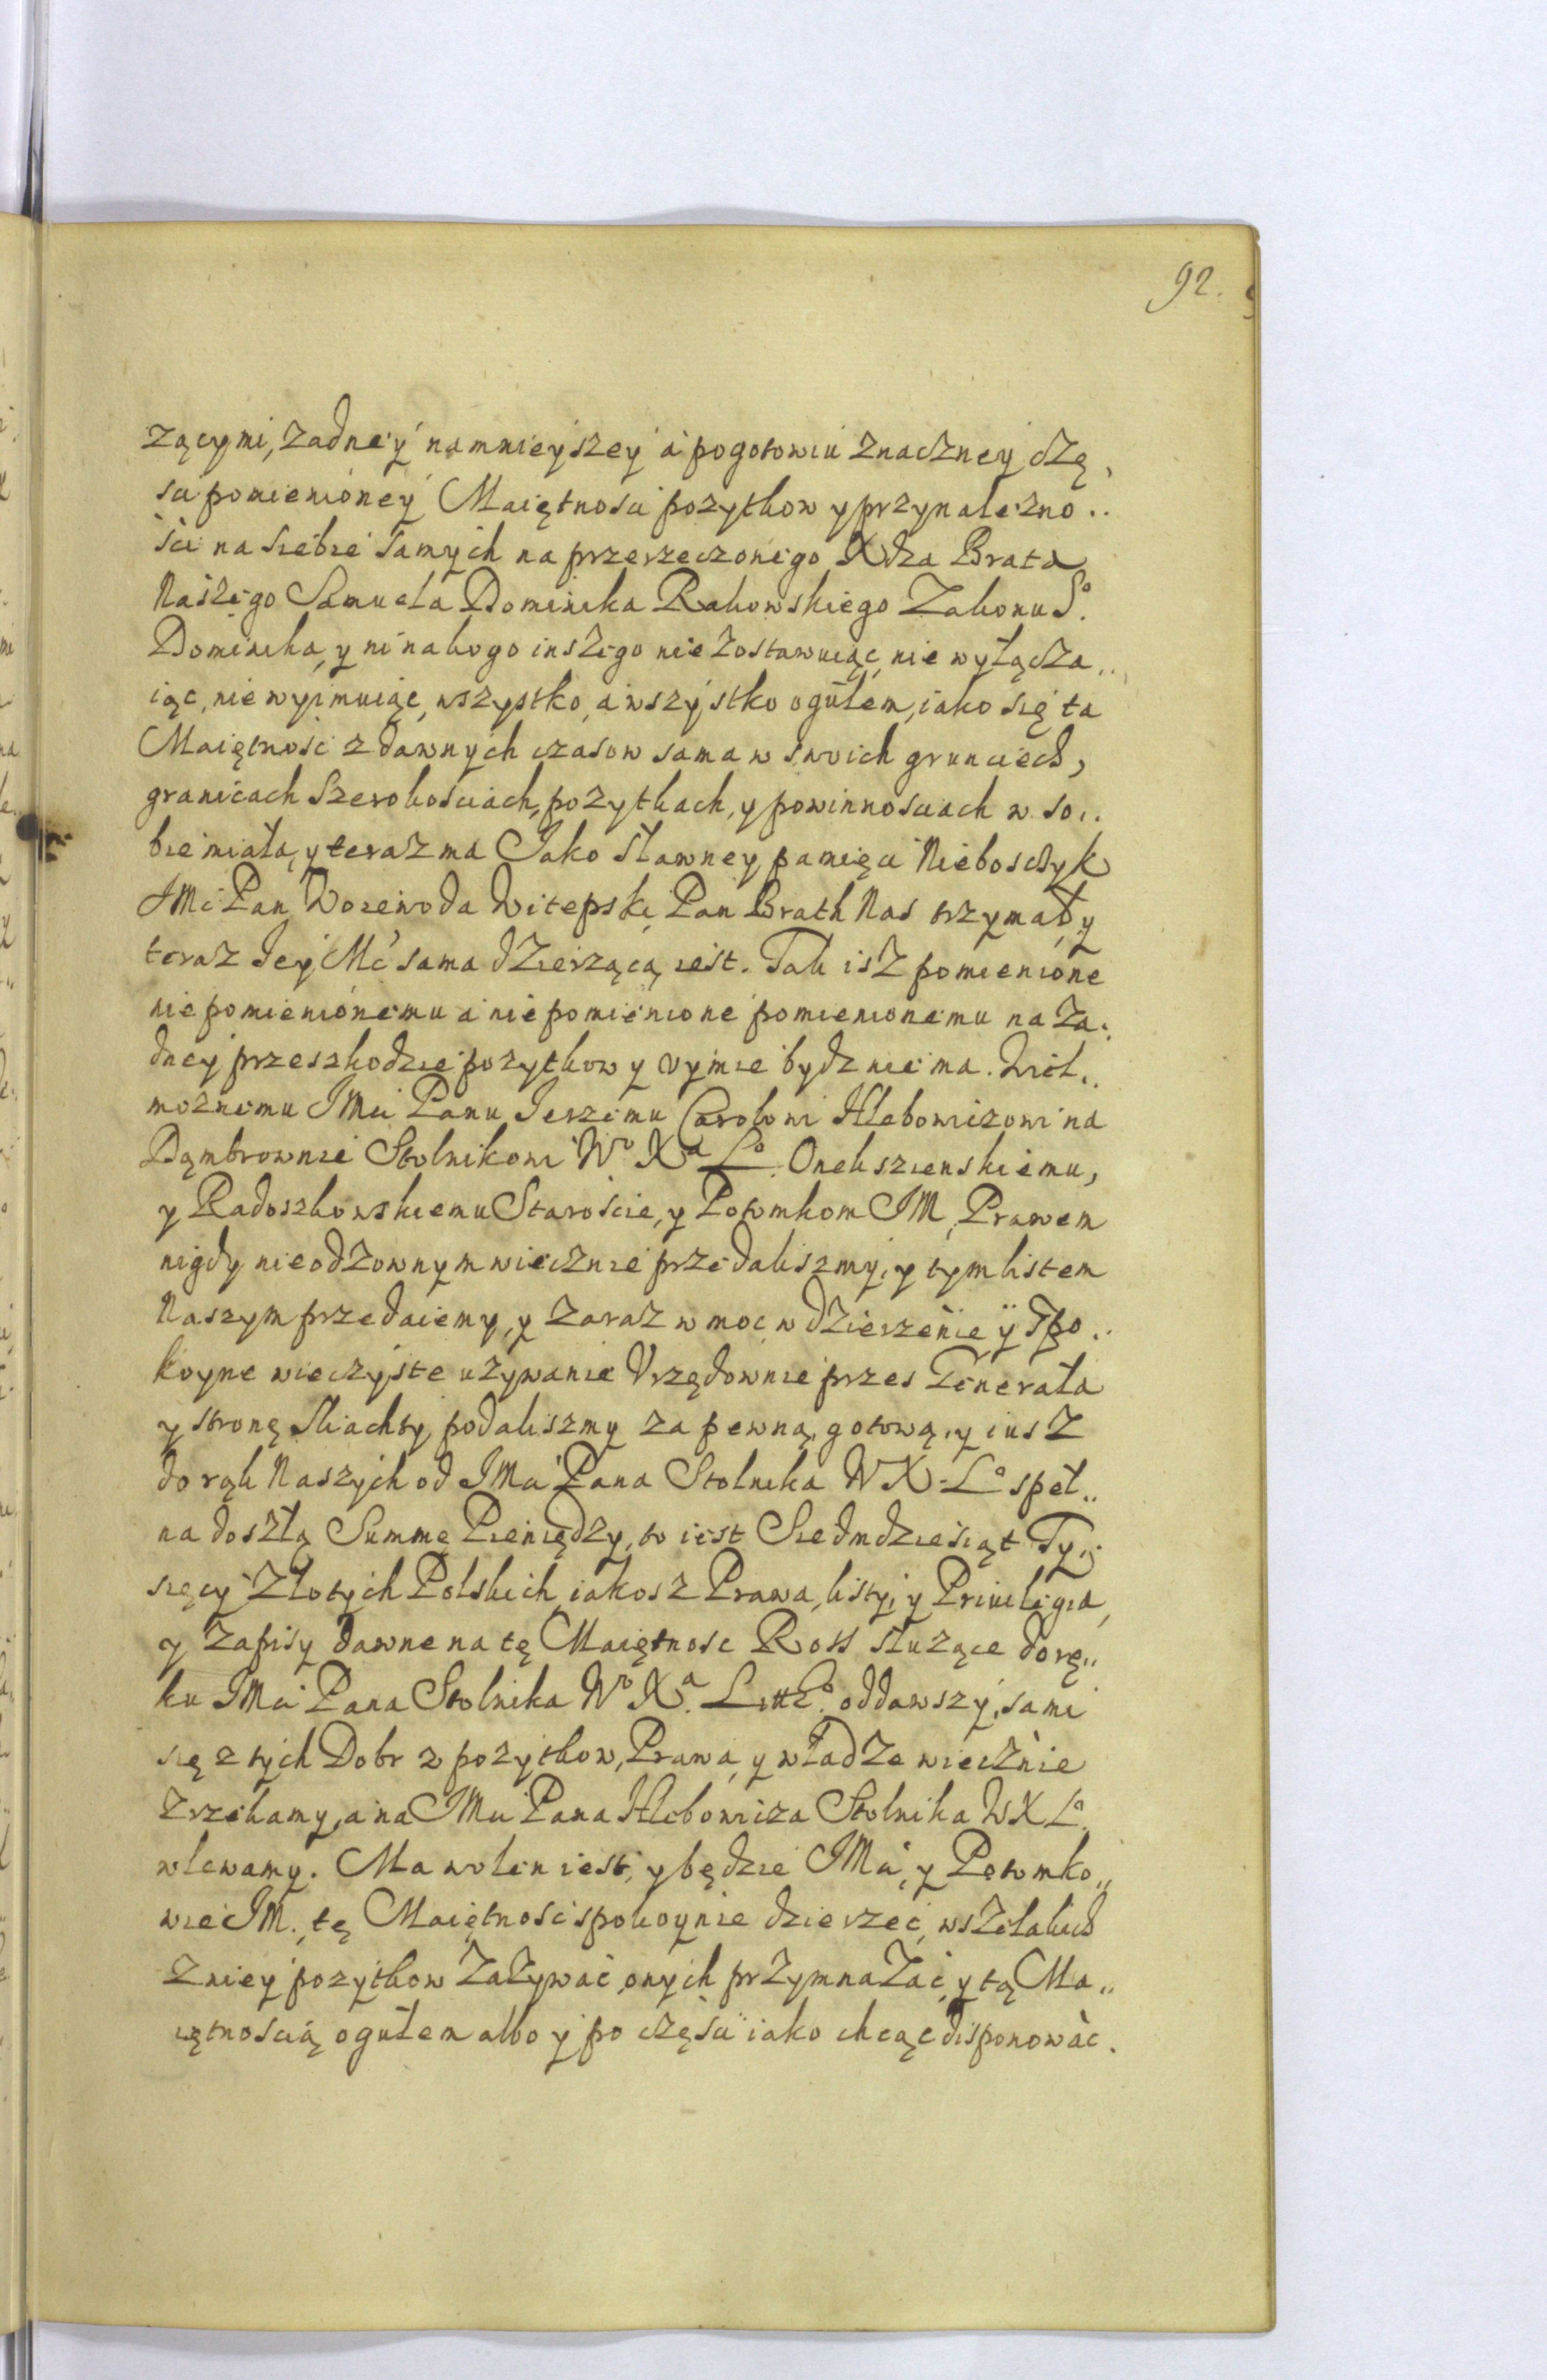 92.
zącymi, zadney namnieyszey a pogotowiu znaczney czę
sci pomienioney Maiętnosci pozytkow y przynalezno..
ści na siebie samych na przerzeczonego Xdza Brata
Naszego Samuela Dominika Rakowskiego Zakonu So.
Dominika, y ni nakogo inszego nie zostawuiąc, nie wyłącza..
iąc, nie wyimuiąc, wszystko, a wszystko ogułem, iako się ta
Maiętność z dawnych czasow sama w swoich grunciech,
granicach szerokościach, pozytkach, y powinnosciach w so..
bie miała, y teraz ma Jako sławney pamięci Nieboszczyk
JMć Pan Woiewoda Witepski Pan Brath Nas trzymał, y
teraz Jey Mć sama dzierzącą iest. Tak isz pomienione
niepomienionemu a niepomienione pomienionemu na za.
dney przeszkodzie pozytkow y uymie bydz nie ma. Wiel..
moznemu JMci Panu Jerzemu Carolowi Hlebowiczowi na
Dąmbrownie Stolnikowi Wo Xa Lo. Onekszienskiemu,
y Radoszkowskiemu Staroście, y Potomkom JM, Prawem
nigdy nieodzownym wiecznie przedaliszmy, y tym listem
Naszym przedaiemy, y zaraz w moc w dzierzenie y spo..
koyne wieczyste uzywanie Vrzędownie przes Generała
y stronę Sliachty podaliszmy za pewną, gotową, y iusz
do rąk Naszych od JMci Pana Stolnika W X Lo speł..
na doszłą Summę Pieniędzy, to iest Siedmdziesiąt Ty..
sięcy Złotych Polskich, iakosz Prawa, listy, y Priuilegia,
y Zapisy dawne na tę Maiętnosc Ross słuzące do rę..
ku JMci Pana Stolnika Wo Xa. Litto. oddawszy, sami
się z tych Dobr z pozytkow, Prawa, y władze wiecznie
zrzekamy, a na JMci Pana Hlebowicza Stolnika W X Lo.
wlewamy. Ma wolen iest, y będzie JMć, y Potomko..
wie JM. tę Maiętnosc spokoynie dzierzeć, wszelakich
z niey pozytkow zazywać, onych przymnazać, y tą Ma..
iętnoscią ogułem albo y po części iako chcąc disponować.